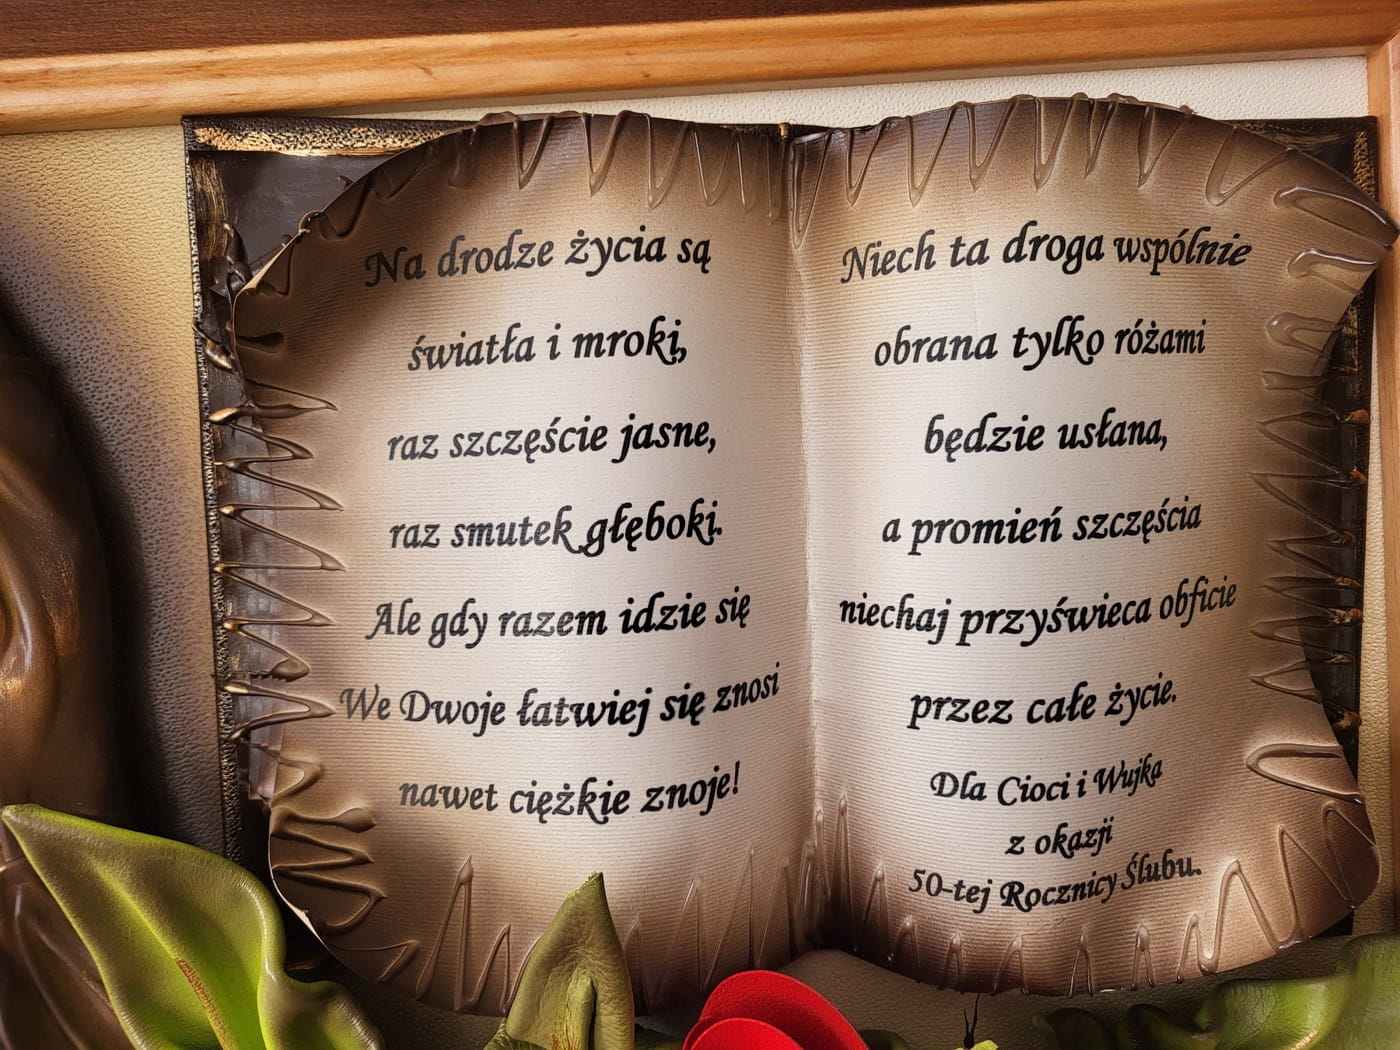 Na drodze życia są
światła i mroki,
raz szczęście jasne,
raz smutek głęboki.
Ale gdy razem idzie się
We Dwoje łatwiej się znosi
nawet ciężkie znoje!
Niech ta droga wspólnie
obrana tylko różami
będzie usłana,
a promień szczęścia
niechaj przyświeca obficie
przez całe życie.
Dla Cioci i Wujka
z okazji
50-tej Rocznicy Ślubu.